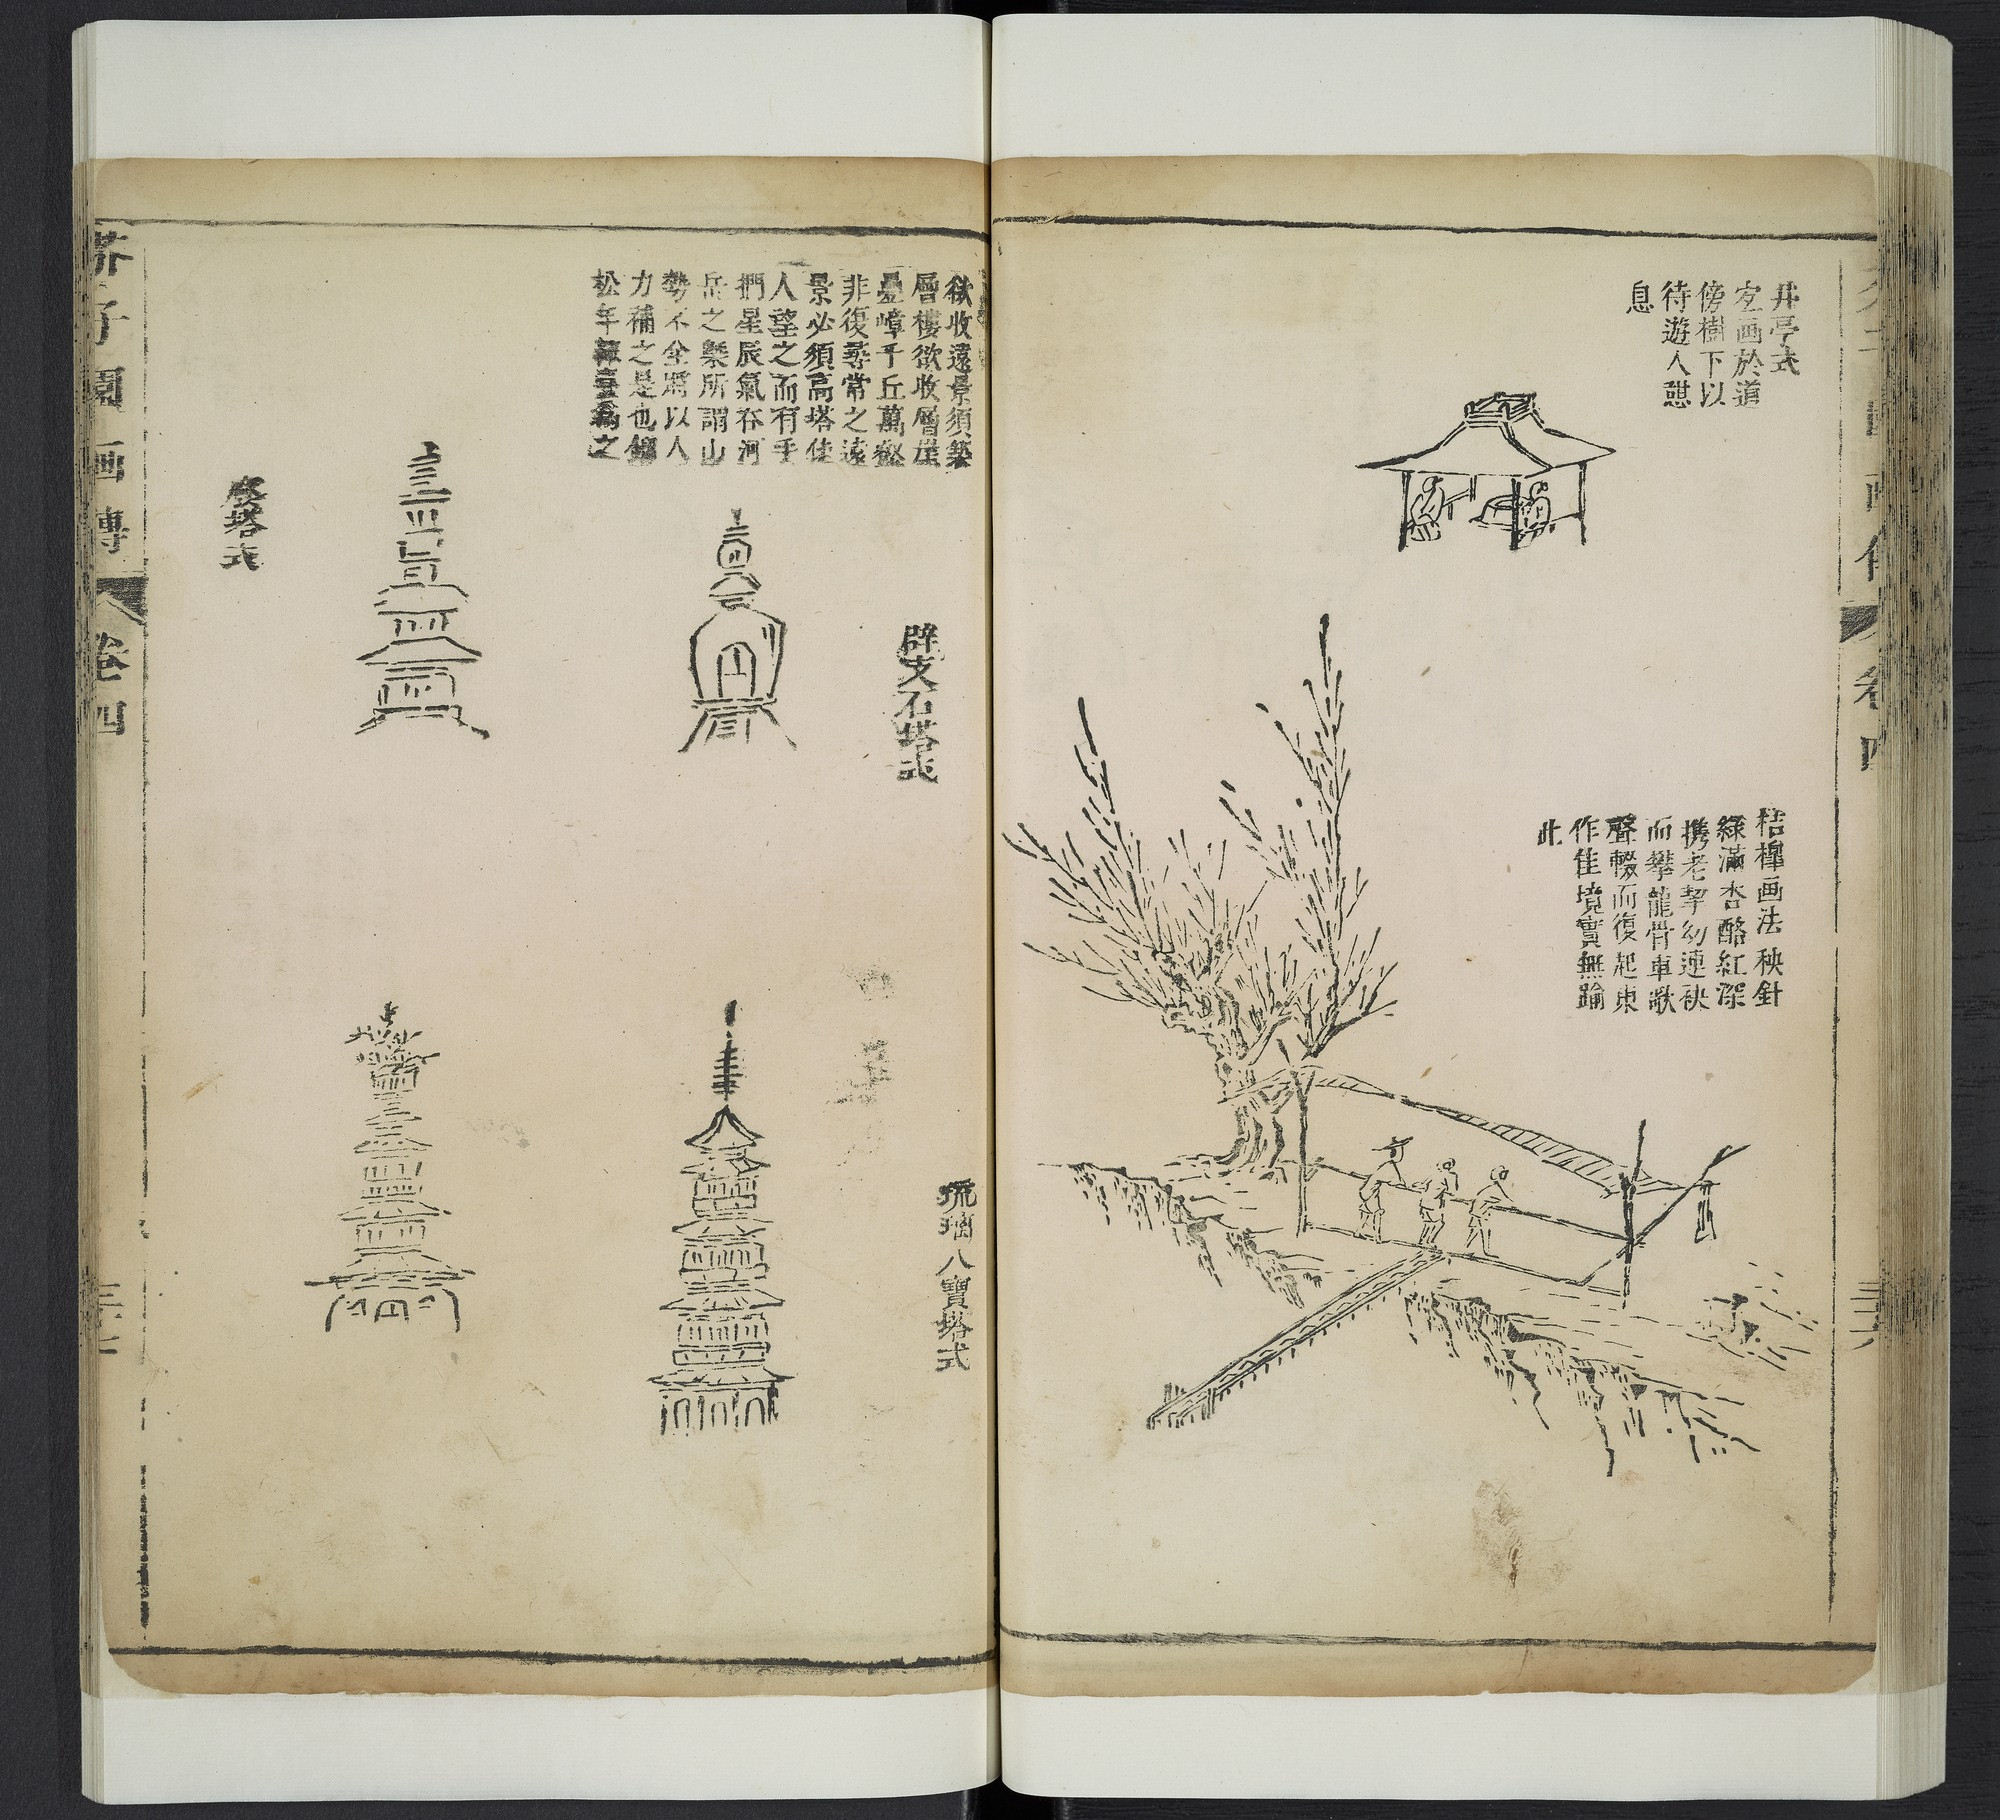 井亭式
宜画於道
傍樹下以
待遊人憇
息
桔槹画法秧針
綠滿杏酪紅深
携老挈幼連袂
而攀龍骨車歌
聲輟而復起東
作佳境實無踰
此
欲收遠景須築
層樓欲收層崖
疊嶂千丘萬壑
非復尋常之遠
景必須高塔使
人望之而有手
捫星辰氣吞河
岳之槩所謂山
勢不全將以人
力補之是也
松年 之
辟支石塔式
琉璃八寶塔式
塔式
芥子園画傳
卷四
卷四